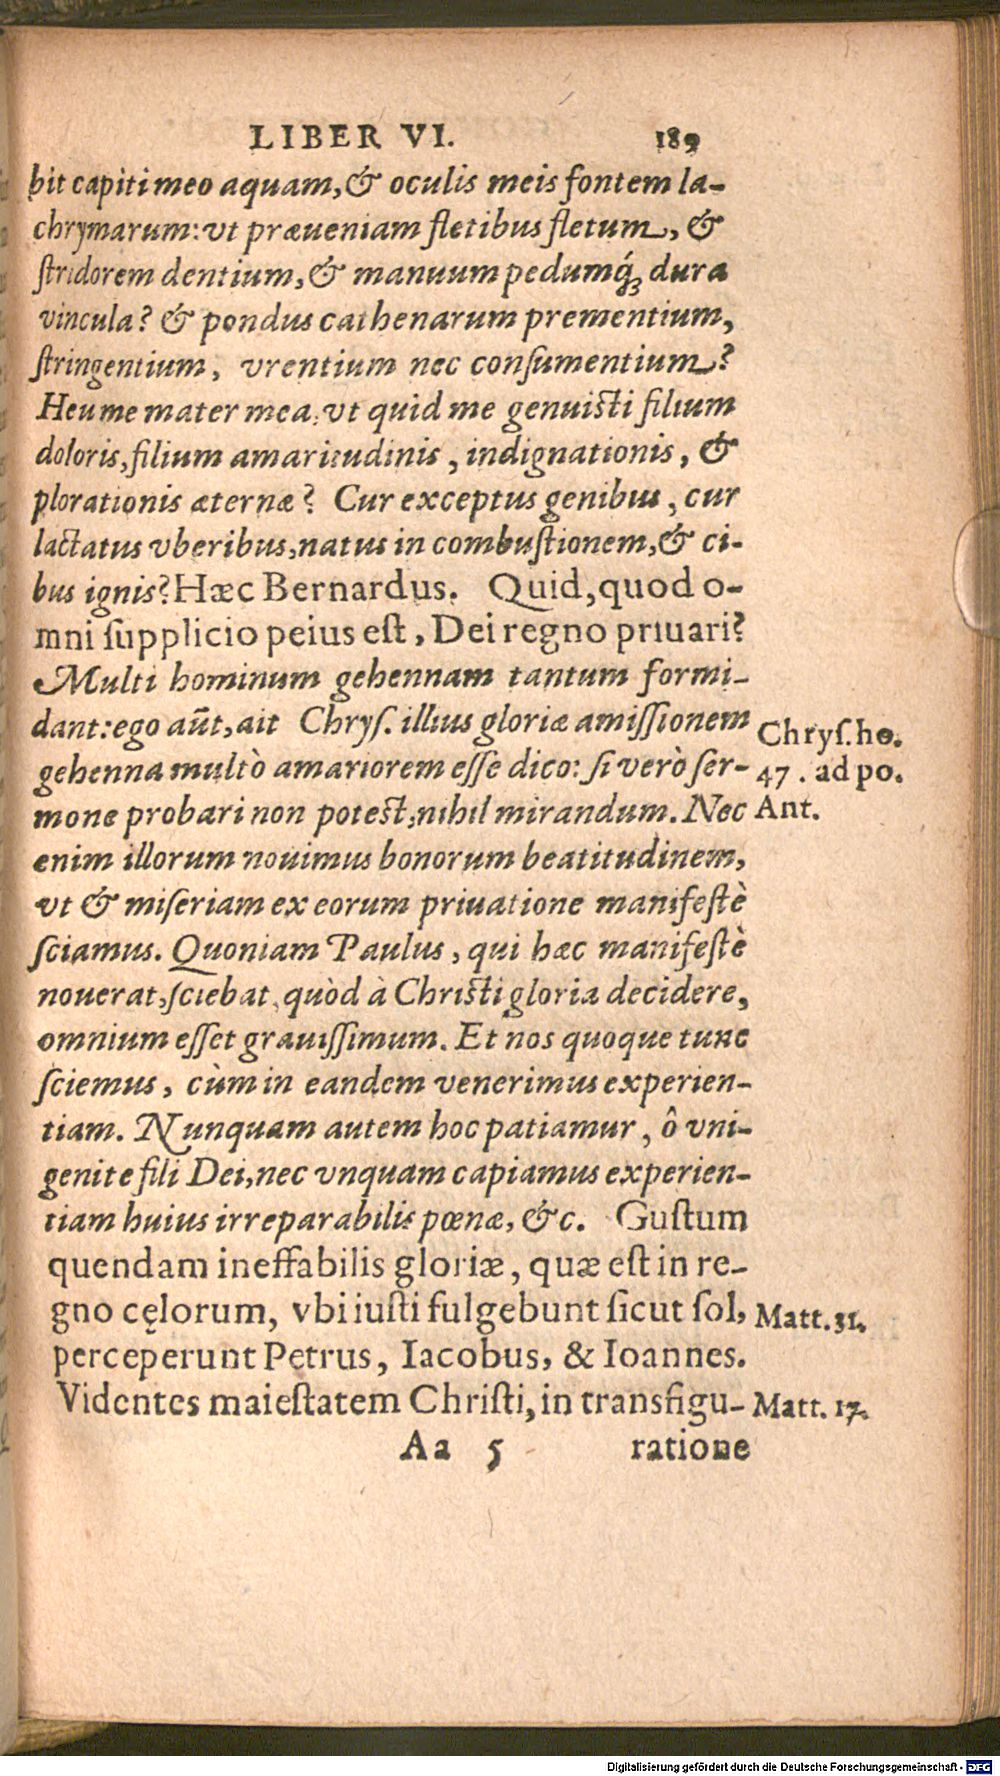 LIBER VI. 189
bit capiti meo aquam, & oculis meis fontem la-
chrymarum: vt præueniam fletibus fletum, &
stridorem dentium, & manuum pedumq́; dura
vincula? & pondus cathenarum prementium,
stringentium, vrentium nec consumentium?
Heu me mater mea, vt quid me genuisti filium
doloris, filium amaritudinis, indignationis, &
plorationis æternæ? Cur exceptus genibus, cur
lactatus vberibus, natus in combustionem, & ci-
bus ignis? Hæc Bernardus. Quid, quod o-
mni supplicio peius est, Dei regno priuari?
Multi hominum gehennam tantum formi-
dant: ego aũt, ait Chrys. illius gloriæ amissionem
Chrys. ho.
gehenna multò amariorem esse dico: si verò ser-
47. ad po.
mone probari non potest, nihil mirandum. Nec
Ant.
enim illorum nouimus bonorum beatitudinem,
vt & miseriam ex eorum priuatione manifestè
sciamus. Quoniam Paulus, qui hæc manifestè
nouerat, sciebat, quòd à Christi gloria decidere,
omnium esset grauissimum. Et nos quoque tunc
sciemus, cùm in eandem venerimus experien-
tiam. Nunquam autem hoc patiamur, ô vni-
genite fili Dei, nec vnquam capiamus experien-
tiam huius irreparabilis pœnæ, &c. Gustum
quendam ineffabilis gloriæ, quæ est in re-
gno cęlorum, vbi iusti fulgebunt sicut sol,
Matt. 31.
perceperunt Petrus, Iacobus, & Ioannes.
Videntes maiestatem Christi, in transfigu-
Matt. 17.
Aa 5 ratione
Digitalisierung gefördert durch die Deutsche Forschungsgemeinschaft - DFG